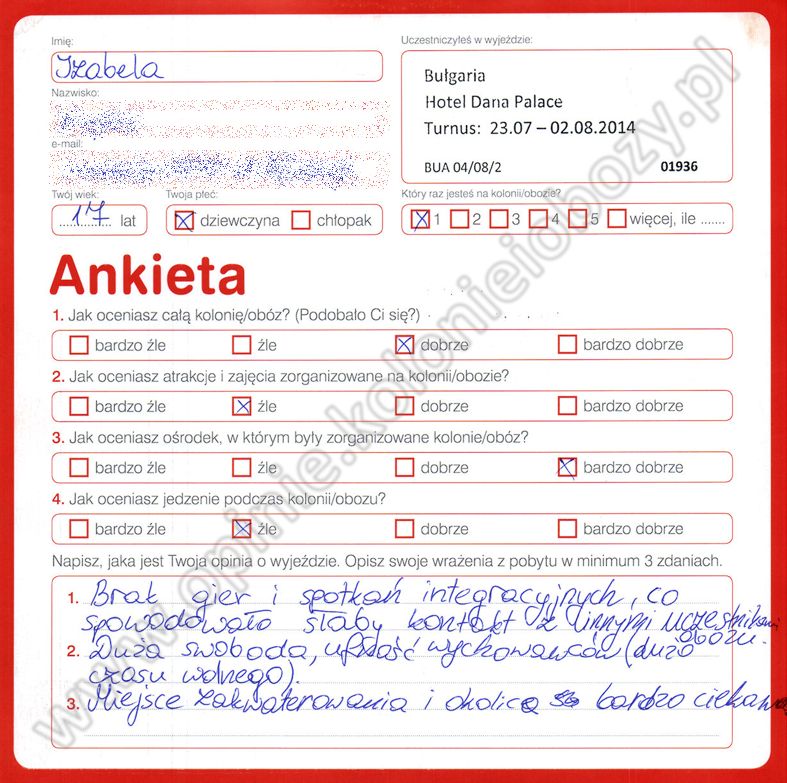 Imię:
Izabela
Nazwisko:
e-mail:
Twój wiek:
17 lat
Twoja płeć:
dziewczyna chłopak
Uczestniczyłeś w wyjeździe:
Bułgaria
Hotel Dana Palace
Turnus: 23.07 – 02.08.2014
BUA 04/08/2 01936
Który raz jesteś na kolonii/obozie?
1 2 3 4 5 więcej, ile .......
Ankieta
1. Jak oceniasz całą kolonię/obóz? (Podobało Ci się?)
bardzo źle źle dobrze bardzo dobrze
2. Jak oceniasz atrakcje i zajęcia zorganizowane na kolonii/obozie?
bardzo źle źle dobrze bardzo dobrze
3. Jak oceniasz ośrodek, w którym były zorganizowane kolonie/obóz?
bardzo źle źle dobrze bardzo dobrze
4. Jak oceniasz jedzenie podczas kolonii/obozu?
bardzo źle źle dobrze bardzo dobrze
Napisz, jaka jest Twoja opinia o wyjeździe. Opisz swoje wrażenia z pobytu w minimum 3 zdaniach.
1. Brak gier i spotkań integracyjnych, co
spowodowało słaby kontakt z innymi uczestnikami
obozu.
2. Duża swoboda, ufność wychowawców (dużo
czasu wolnego).
3. Miejsce zakwaterowania i okolice są bardzo ciekawe
www.opinie.kolonieiobozy.pl